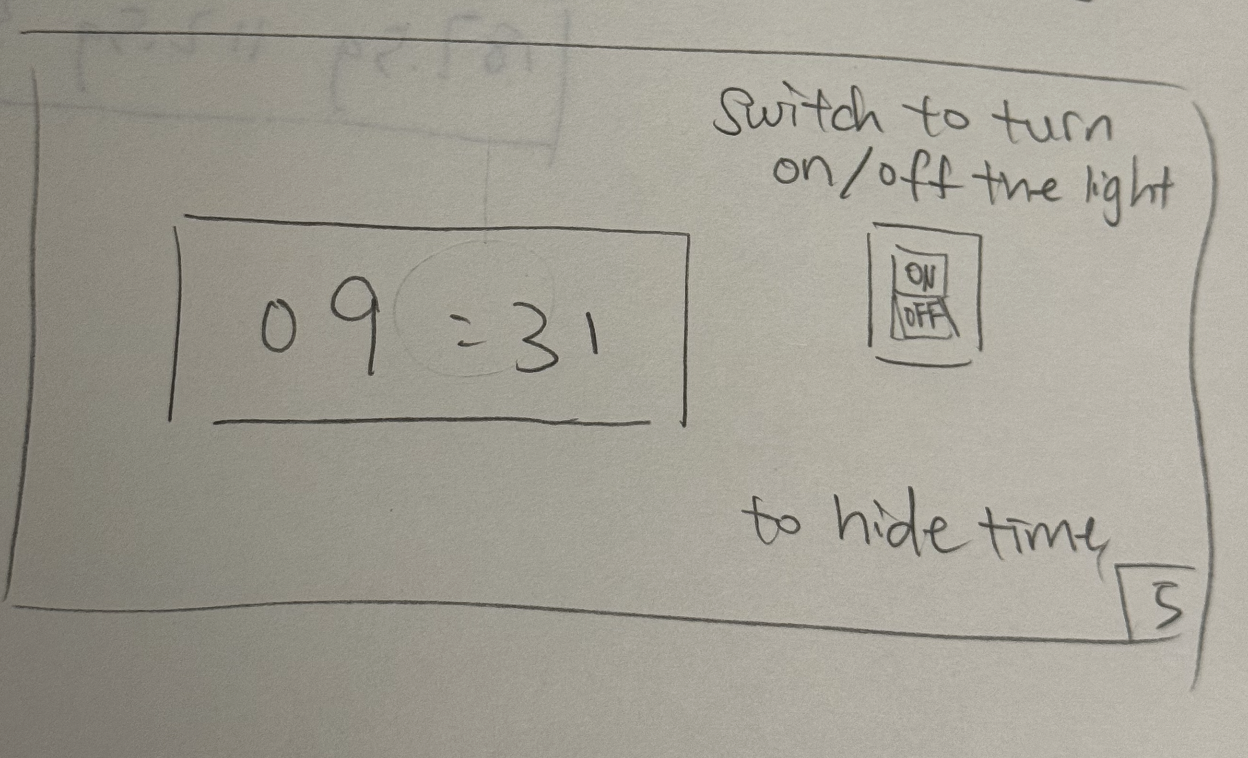 switch to turn
on/off the light
ON
OFF
09:31
to hide time
S